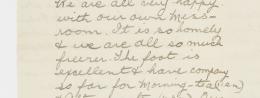 We are all very happy
with our own mess-
room. It is so homely
& we are all so much
freer. The food is
excellent & have company
so far for morning-tea